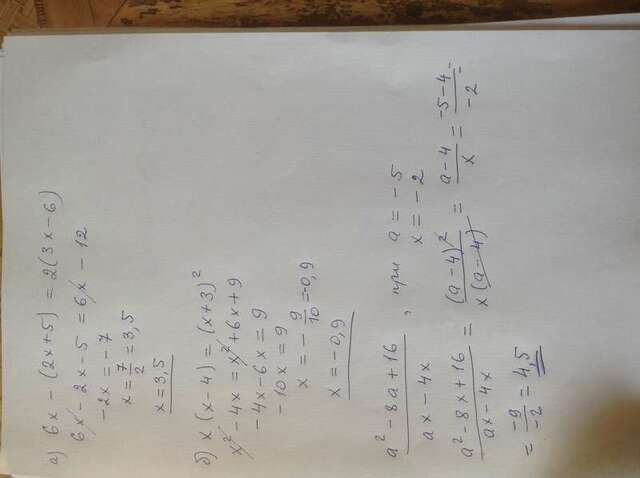 а) 6x - (2x+5) = 2(3x-6)
6x - 2x - 5 = 6x - 12
-2x = -7
x = 7/2 = 3,5
x = 3,5
б) x (x-4) = (x+3)²
x² - 4x = x² + 6x + 9
-4x - 6x = 9
-10x = 9
x = - 9/10 = -0,9
x = -0,9
a² - 8a + 16 / ax - 4x , при a = -5
x = -2
a² - 8x + 16 / ax - 4x = (a-4)² / x(a-4) = a-4 / x = -5-4 / -2 =
= -9 / -2 = 4,5